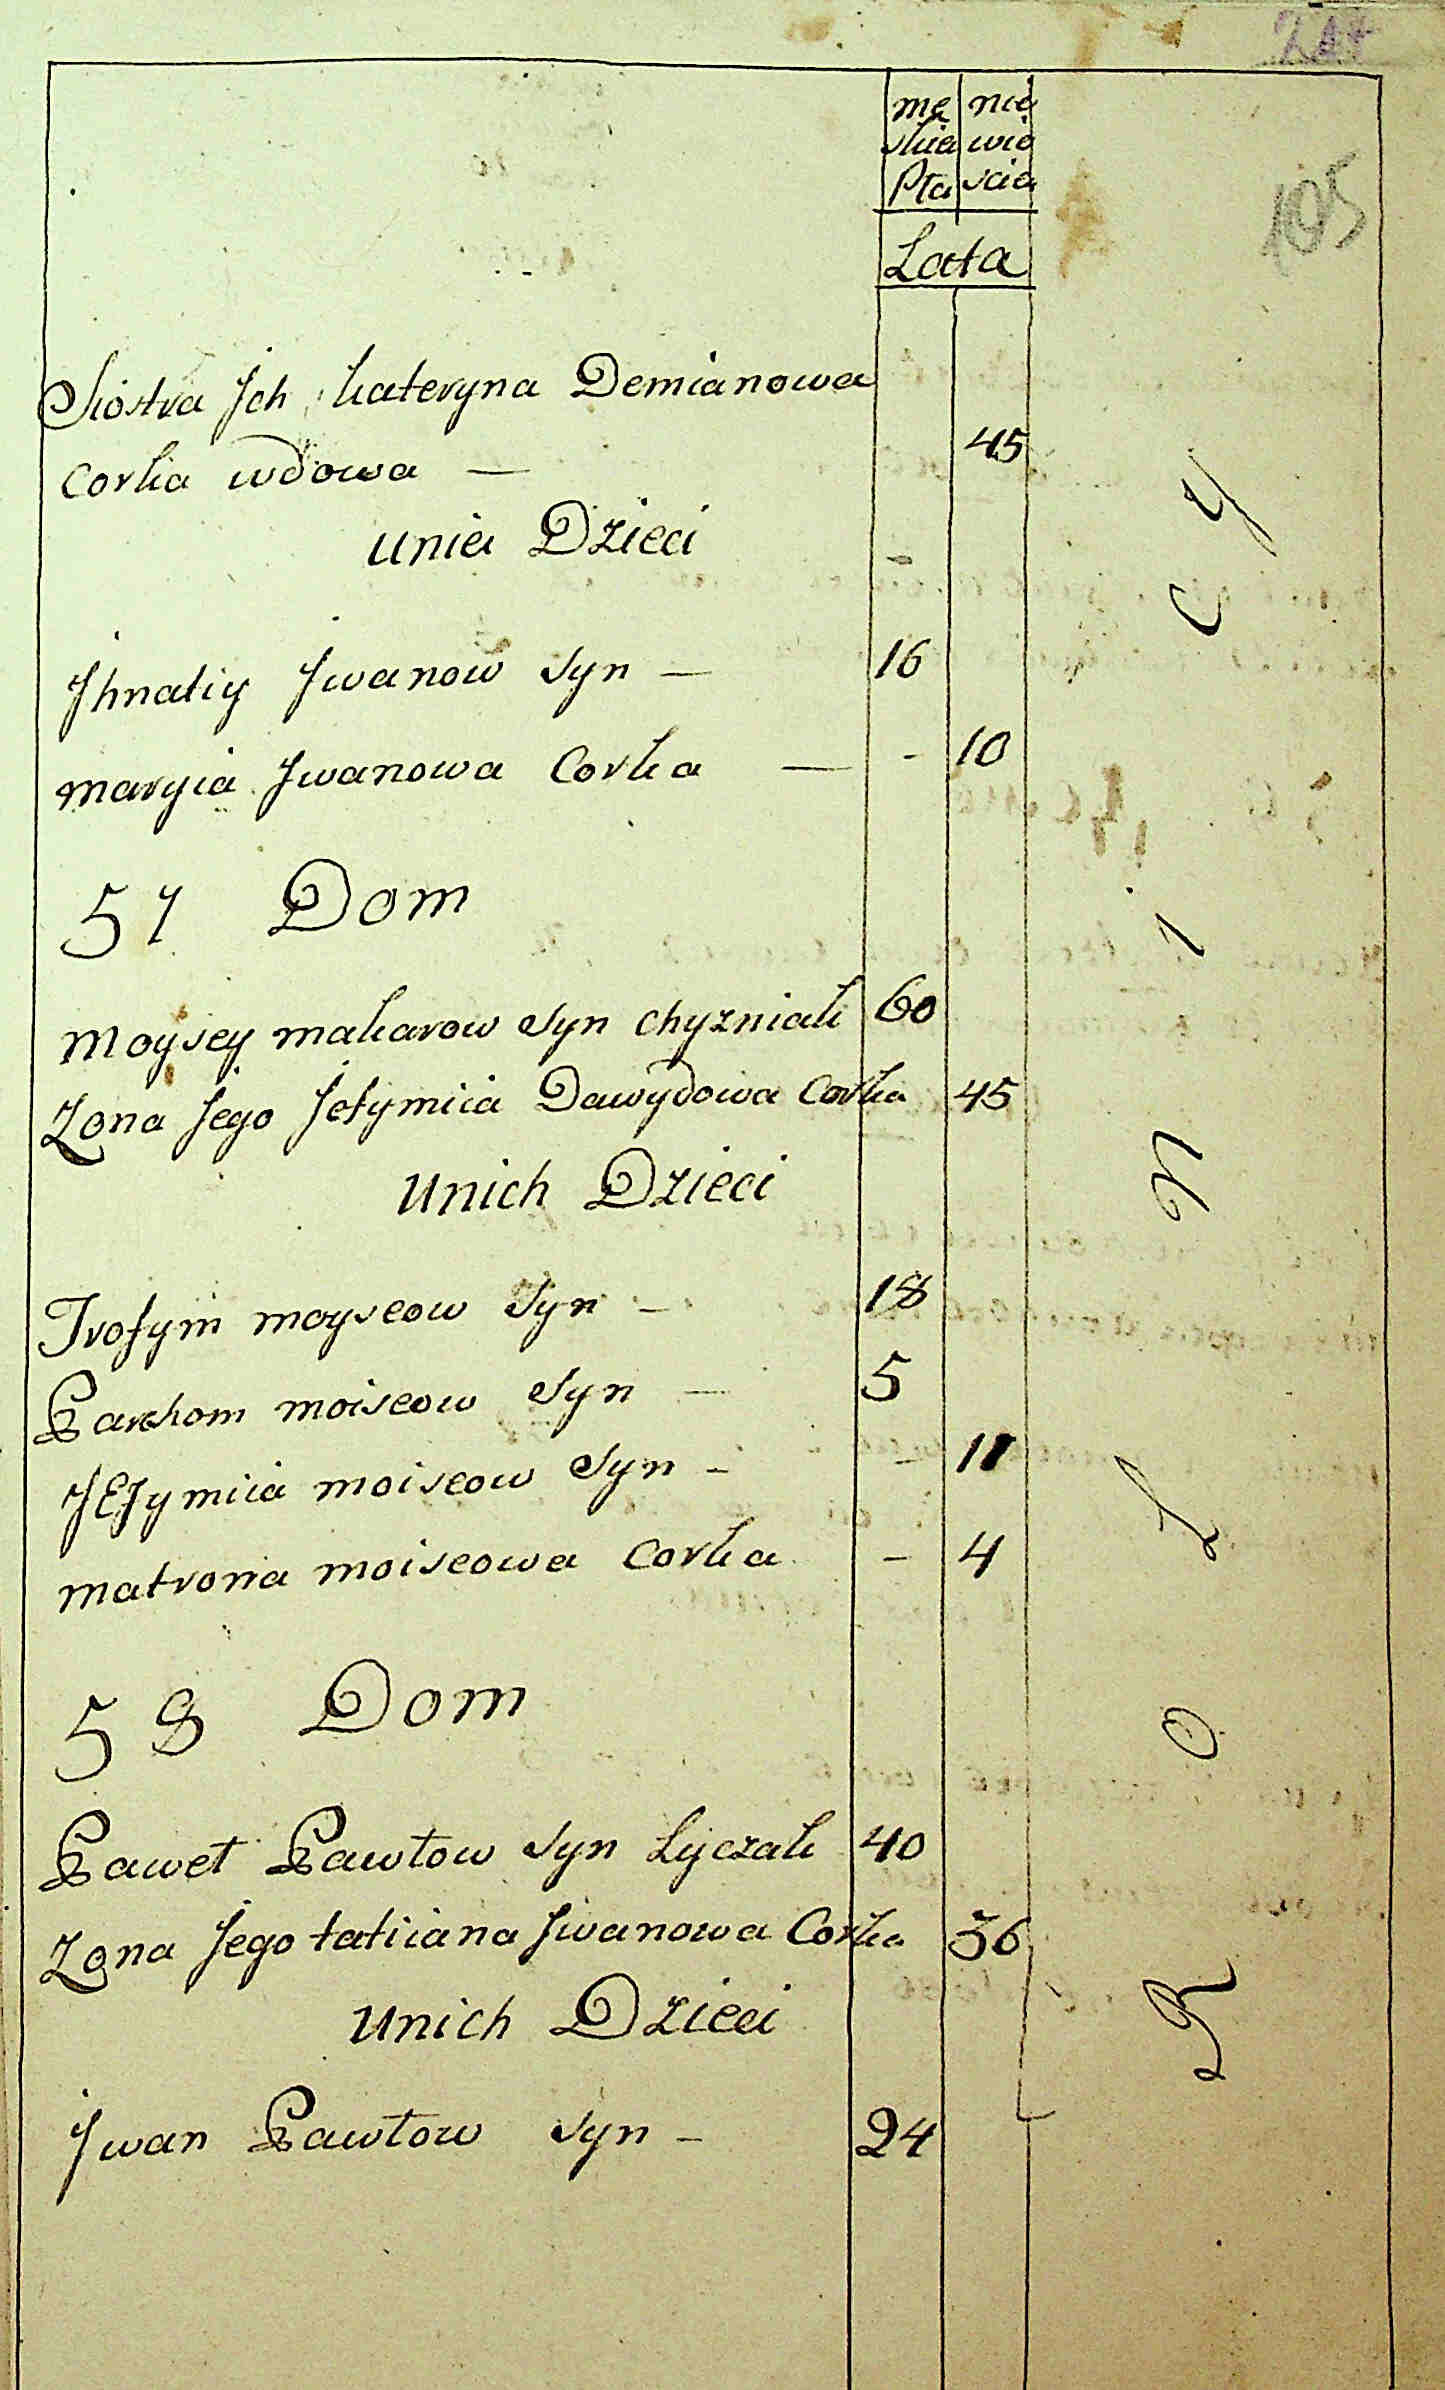 105
mę nie
skie wie
Płci scie
Lata
Siostra Jch kateryna Demianowa
Corka wdowa — 45
unie Dzieci
Jhnatiy Jwanow syn — 16
maryia Jwanowa Corka — - 10
57 Dom
moysey makarow syn chyzniak 60
Zona Jego Jefymiia Dawydowa Corka 45
unich Dzieci
Trofym moyseow syn - 18
Parchom moiseow syn — 5
JEfymiia moiseow syn - - 11
matrona moiseowa Corka - 4
58 Dom
Paweł Pawłow syn Lyczak 40
Zona Jego tatiiana Jwanowa Corka 36
unich Dzieci
Jwan Pawłow syn - 24
R O L N I C Y